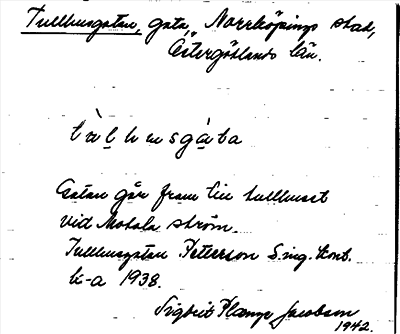 Tullhusgatan, gata, Norrköpings stad,
Östergötlands län.
tùl h u sgàta
Gatan går fram till tullhuset
vid Motala ström.
Tullhusgatan Peterson S.ing. kont.
k-a 1938.
Sigbrit Plænge Jacobson
1942.